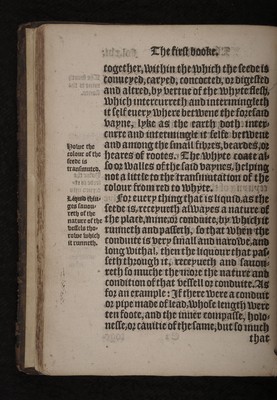 The first booke.
together, within the which the seede is
conueyed, caryed, concocted, or digested
and altred, by vertue of the whyte flesh,
which intercurreth and intermingleth
it self euery where betwene the foresaid
vayne, lyke as the earth doth inter-
curre and intermingle it selfe betwene
and among the small fibres, beardes, or
heares of rootes. The whyte coate al-
so or walles of the said vaynes, helping
not a little to the transmutation of the
colour from red to whyte.
For euery thing that is liquid, as the
seede is, receyueth allwayes a nature of
the place, waye, or conduite, by which it
runneth and passeth, so that when the
conduite is very small and narowe, and
long withal, then the liquour that pas-
seth through it, receyueth and sauou-
reth so muche the more the nature and
condition of that vessell or conduite. As
for an example: If there were a conduit
or pipe made of lead, whose length were
ten foote, and the inner compasse, holo-
nesse, or cauitie of the same, but so much
that
Howe the
colour of the
seede is
transmuted.
Liquid thin-
ges sauou-
reth of the
nature of the
vessels tho-
rowe which
it runneth.